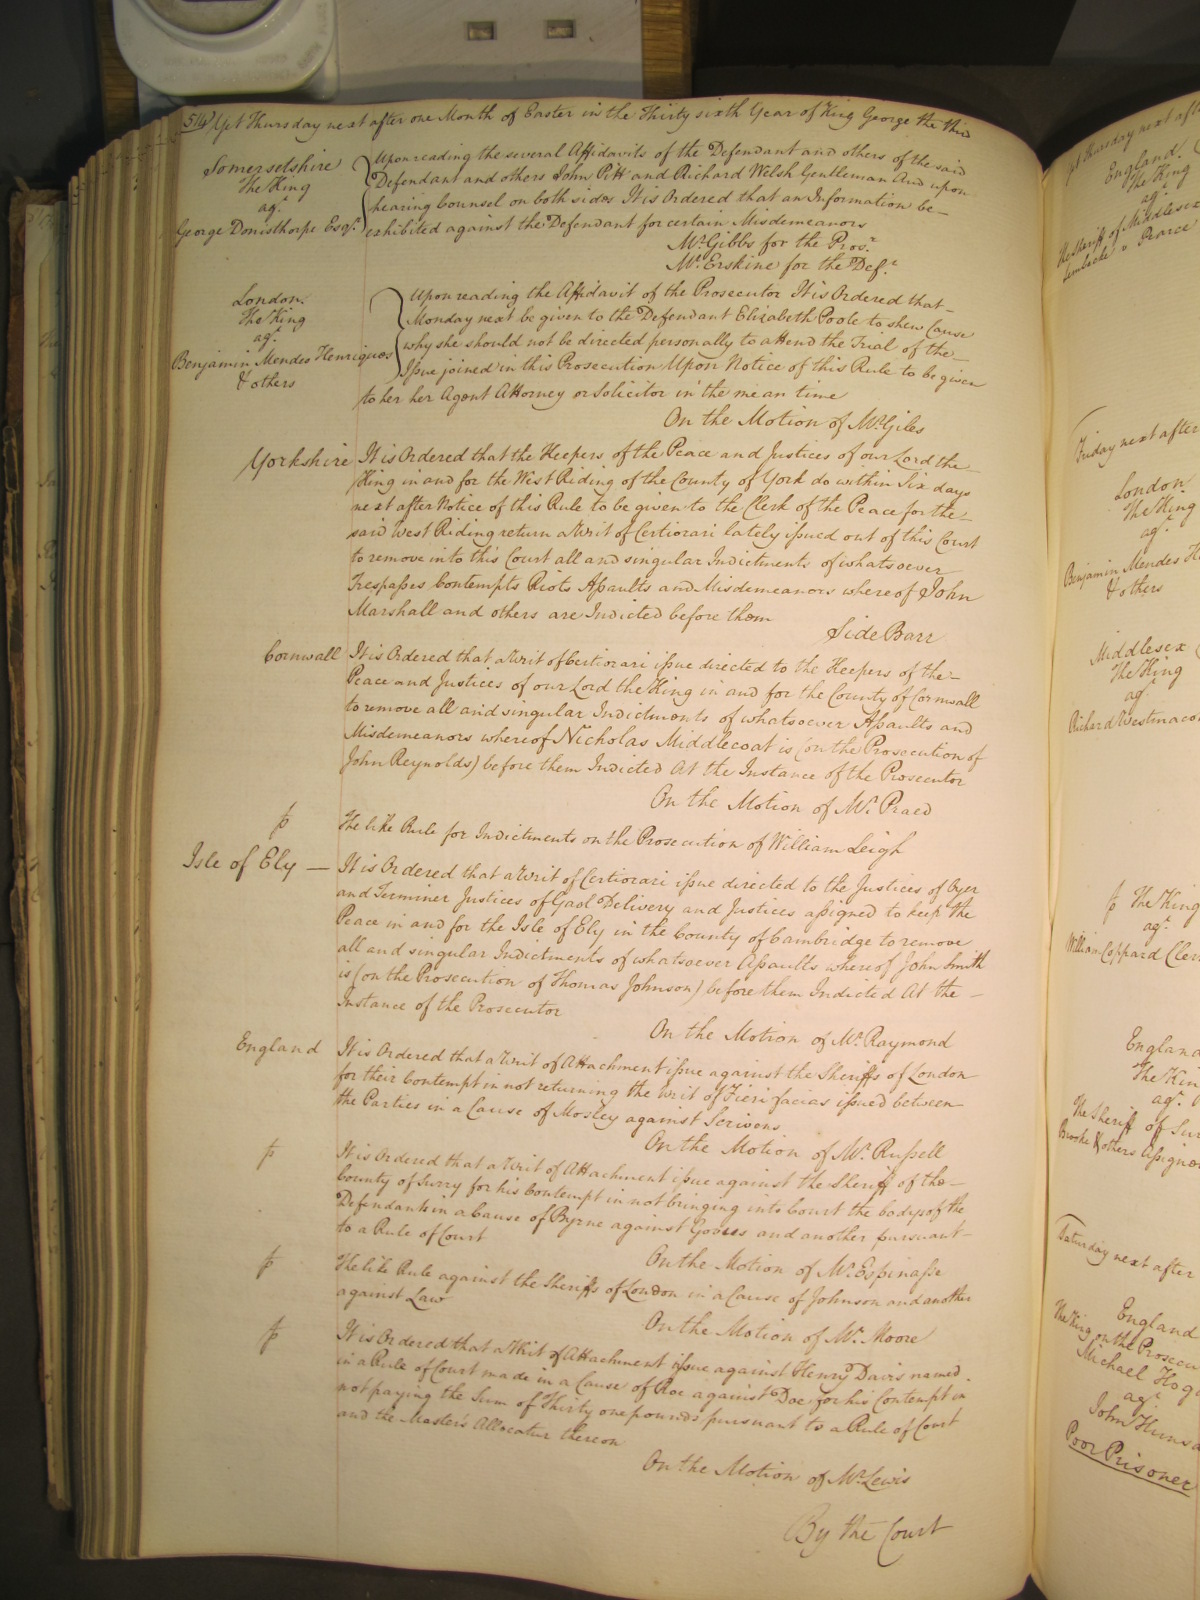 514 Yet Thursday next after one Month of Easter in the Thirty sixth Year of King George the third
Somersetshire
The King
agt.
George Donisthorpe Esqr.
Upon reading the several Affidavits of the Defendant and others of the said
Defendant and others John Pitt and Richard Welsh Gentleman And upon
hearing Counsel on both sides It is Ordered that an Information be
exhibited against the Defendant for certain Misdemeanors
Mr. Gibbs for the Prosr.
Mr. Erskine for the Deft.
London.
The King
agt.
Benjamin Mendes Henriques
& others
Upon reading the Affidavit of the Prosecutor It is Ordered that
Monday next be given to the Defendant Elizabeth Poole to shew Cause
why she should not be directed personally to attend the Trial of the
Issue joined in this Prosecution Upon Notice of this Rule to be given
to her her Agent Attorney or Solicitor in the mean time
On the Motion of Mr. Giles
Yorkshire It is Ordered that the Keepers of the Peace and Justices of our Lord the
King in and for the West Riding of the County of York do within Six days
next after Notice of this Rule to be given to the Clerk of the Peace for the
said West Riding return a Writ of Certiorari lately issued out of this Court
to remove into this Court all and singular Indictments of whatsoever
Trespasses Contempts Riots Assaults and Misdemeanors whereof John
Marshall and others are Indicted before them
Side Barr
Cornwall It is Ordered that a Writ of Certiorari issue directed to the Keepers of the
Peace and Justices of our Lord the King in and for the County of Cornwall
to remove all and singular Indictments of whatsoever Assaults and
Misdemeanors whereof Nicholas Middlecoat is (on the Prosecution of
John Reynolds) before them Indicted At the Instance of the Prosecutor
On the Motion of Mr. Praed
The like Rule for Indictments on the Prosecution of William Leigh
Isle of Ely — It is Ordered that a Writ of Certiorari issue directed to the Justices of Oyer
and Terminer Justices of Gaol Delivery and Justices assigned to keep the
Peace in and for the Isle of Ely in the County of Cambridge to remove
all and singular Indictments of whatsoever Assaults whereof John Smith
is (on the Prosecution of Thomas Johnson) before them Indicted At the
Instance of the Prosecutor
On the Motion of Mr. Raymond
England It is Ordered that a Writ of Attachment issue against the Sheriffs of London
for their Contempt in not returning the Writ of Fieri facias issued between
the Parties in a Cause of Mosley against Scrivens
On the Motion of Mr. Russell
It is Ordered that a Writ of Attachment issue against the Sheriff of the
County of Surry for his Contempt in not bringing into Court the bodys of the
Defendants in a Cause of Byrne against and another pursuant
to a Rule of Court
On the Motion of Mr. Espinasse
The like Rule against the Sheriffs of London in a Cause of Johnson and another
against Law
On the Motion of Mr. Moore
It is Ordered that a Writ of Attachment issue against Henry Davis named
in a Rule of Court made in a Cause of Roe against Doe for his Contempt in
not paying the Sum of Thirty one pounds pursuant to a Rule of Court
and the Master's Allocatur thereon
On the Motion of Mr. Lewis
By the Court
Yet Thursday next afte
England.
The King
agt.
the Sheriff of Middlesex
Pearce
Friday next after
London.
The King
agt.
Benjamin Mendes H
& others
Middlesex
The King
agt.
Richard Westmaco
The King
agt.
William Cleppard Cler
England
The Kin
agt.
the Sheriff of Sur
Brooke & others Assignee
Saturday next after
England
The King on the Prosecu
Michael Hog
agt.
John Huns
Poor Prisoner